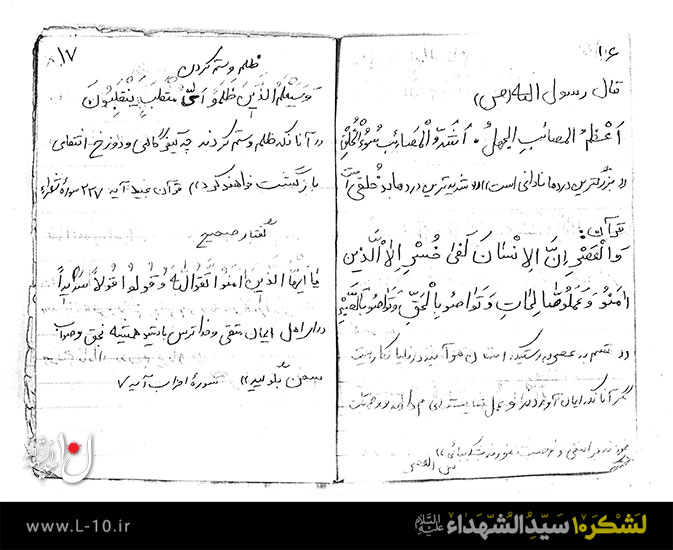 ۱۶
قال رسول الله (ص)
اَعْظَمُ المصائبِ الجهلُ. اَشَدُّ المصائب سُوءُ الخُلْقِ
«بزرگترین دردها نادانی است» «شدیدترین دردها بد خُلقی است»
قرآن:
وَالْعَصْرِ اِنَّ الاِنْسانَ لَفی خُسْرٍ اِلاَّ الَّذین
امَنُوُ وَ عَمَلُوصّالِحاتِ وَ تَواصَوْبِالْحَقِّ وَتَواصَوْبِالصَّبْرِ
«قسم به عصر
مگر آنانکه ایمان آورده
۱۷
ظلم و ستم کردن
وَسَیَعْلَمُ الذَّیَنَ ظَلَمَوُ اَیَّ مُنْقَلَبَ یَنْقَلِبُونَ
«آنانکه ظلم و ستم کردند چه کیفرگاهی و دوزخ انتقامی
بازگشت خواهند کرد» قرآن مجید آیه ۲۲۷ سوره شعراء
گفتار صحیح
یا ایها الذَّین امنوا تَّقوالله وَ قُولُوا قُولاً سَدیداً
ای اهل ایمان متقی و خدا ترس باشید و همیشه بحق و صواب
سخن بگوئید» سورهٔ احزاب آیه ۷
ل۱۰
www.L-10.ir
لَشْکَرِ۱۰سَیِّدُالشُّهَداءِ عَلَیْهِ السَّلام